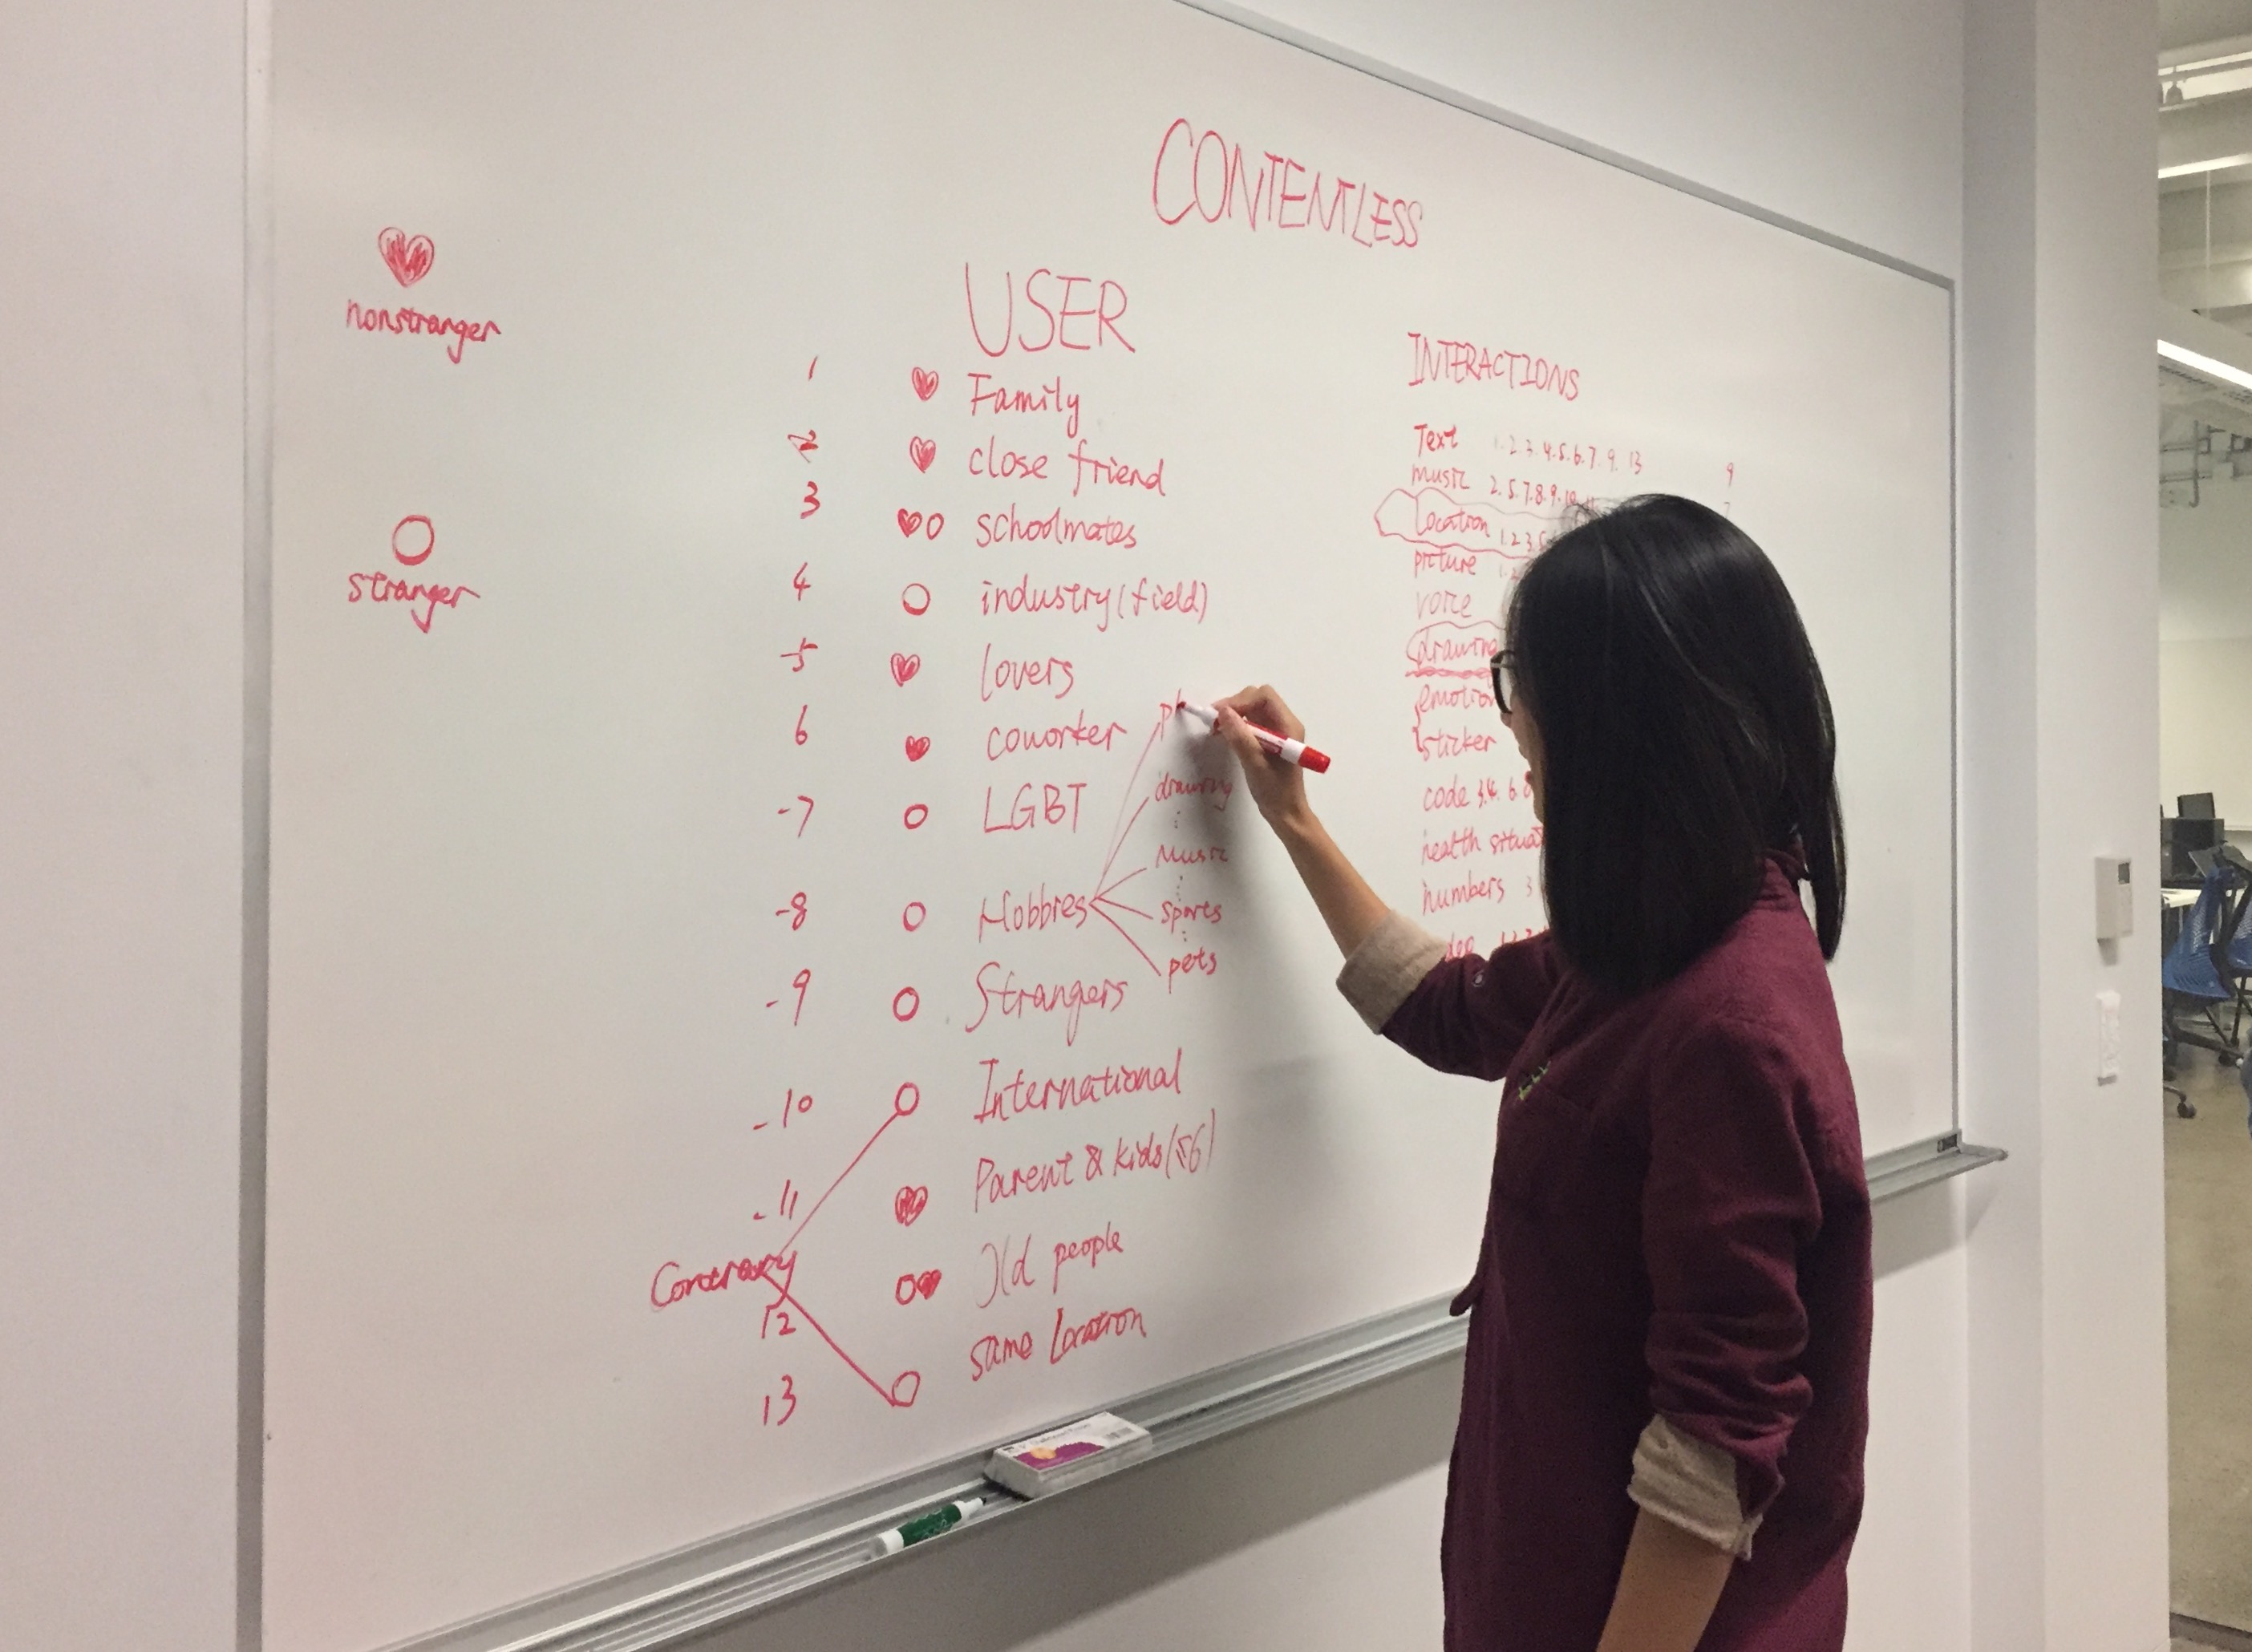 CONTENTLESS
nonstranger
stranger
USER
1 Family
2 close friend
3 schoolmates
4 industry (field)
5 lovers
6 coworker
-7 LGBT
-8 Hobbies
ph
drawing
Music
sports
pets
-9 Strangers
-10 International
-11 Parent & kids (≤6)
Contrary
12 Old people
13 same location
INTERACTIONS
Text 1.2.3.4.5.6.7.9.13 9
music 2.5.7.8.9.10 7
location 1.2.3
picture 1.2
voice
drawing
emotion
sticker
code 3.4.6.8
health situa
numbers 3
deo 1.2.3